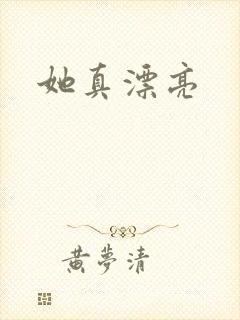 她真漂亮
黄夢清